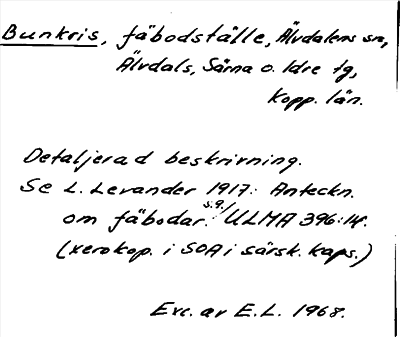 Bunkris, fäbodställe, Älvdalens sn,
Älvdals, Särna o. Idre tg,
Kopp. län.
Detaljerad beskrivning.
Se L. Levander 1917: Anteckn.
s.9./
om fäbodar. ULMA 396:14.
(xerokop. i SOA i särsk. kaps.)
Exc. av E.L. 1968.